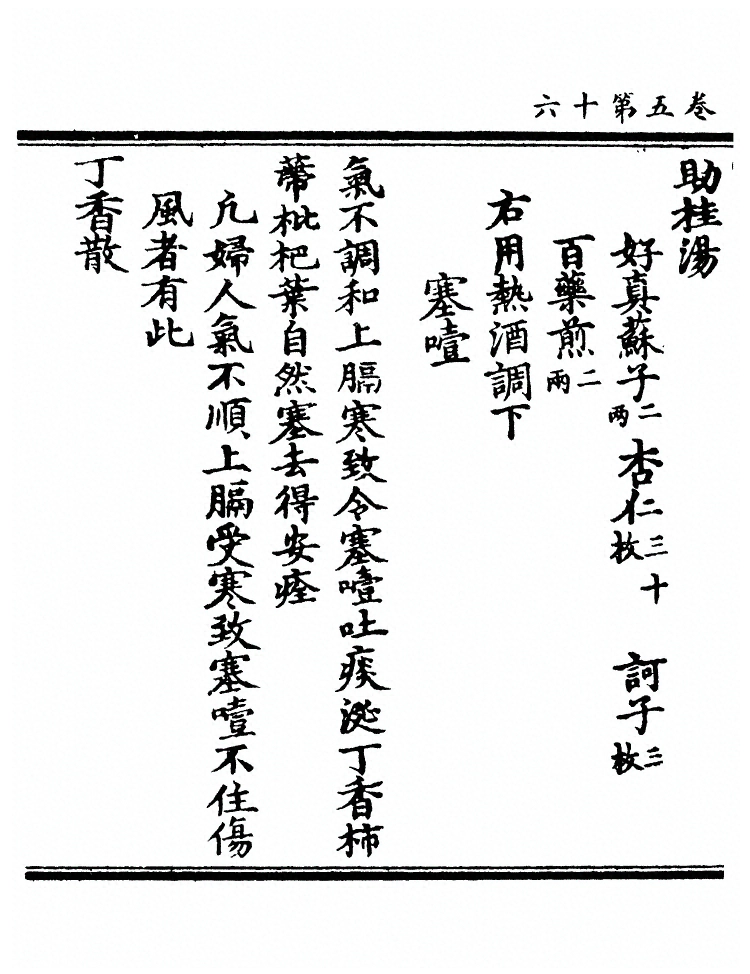 卷五第十六
助桂湯
好真蘇子二两 杏仁三十枚 訶子三枚
百藥煎二兩
右用熱酒調下
塞噎
氣不調和上膈寒致令塞噎吐痰涎丁香柿
蒂枇杷葉自然塞去得安痊
凡婦人氣不順上膈受寒致塞噎不住傷
風者有此
丁香散